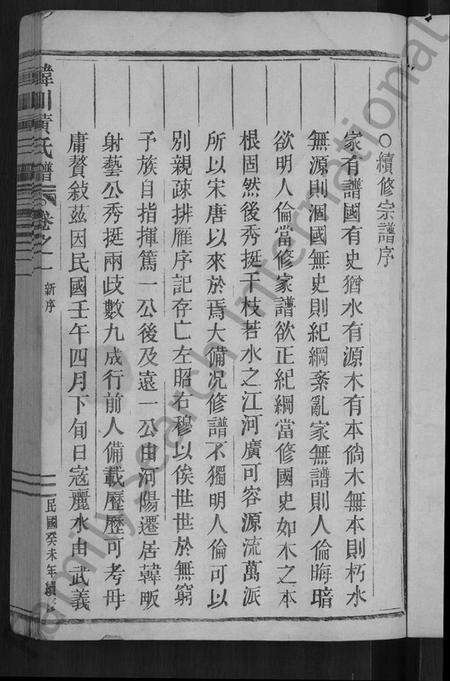 ○續修宗譜序
家有譜國有史猶水有源木有本倘木無本則朽水
無源則涸國無史則紀綱紊亂家無譜則人倫晦暗
欲明人倫當修家譜欲正紀綱當修國史如木之本
根固然後秀挺千枝若水之江河廣可容源流萬派
所以宋唐以來於焉大備况修譜不獨明人倫可以
別親疎排雁序記存亡左昭右穆以俟世世於無窮
予族自指揮篤一公後及遠一公由河陽遷居韓畈
射藝公秀挺兩歧數九成行前人備載歷歷可考毋
庸贅敍茲因民國壬午四月下旬日寇麗水由武義
韓川黃氏譜
卷之一
新序
民國癸未年續
familysearch international